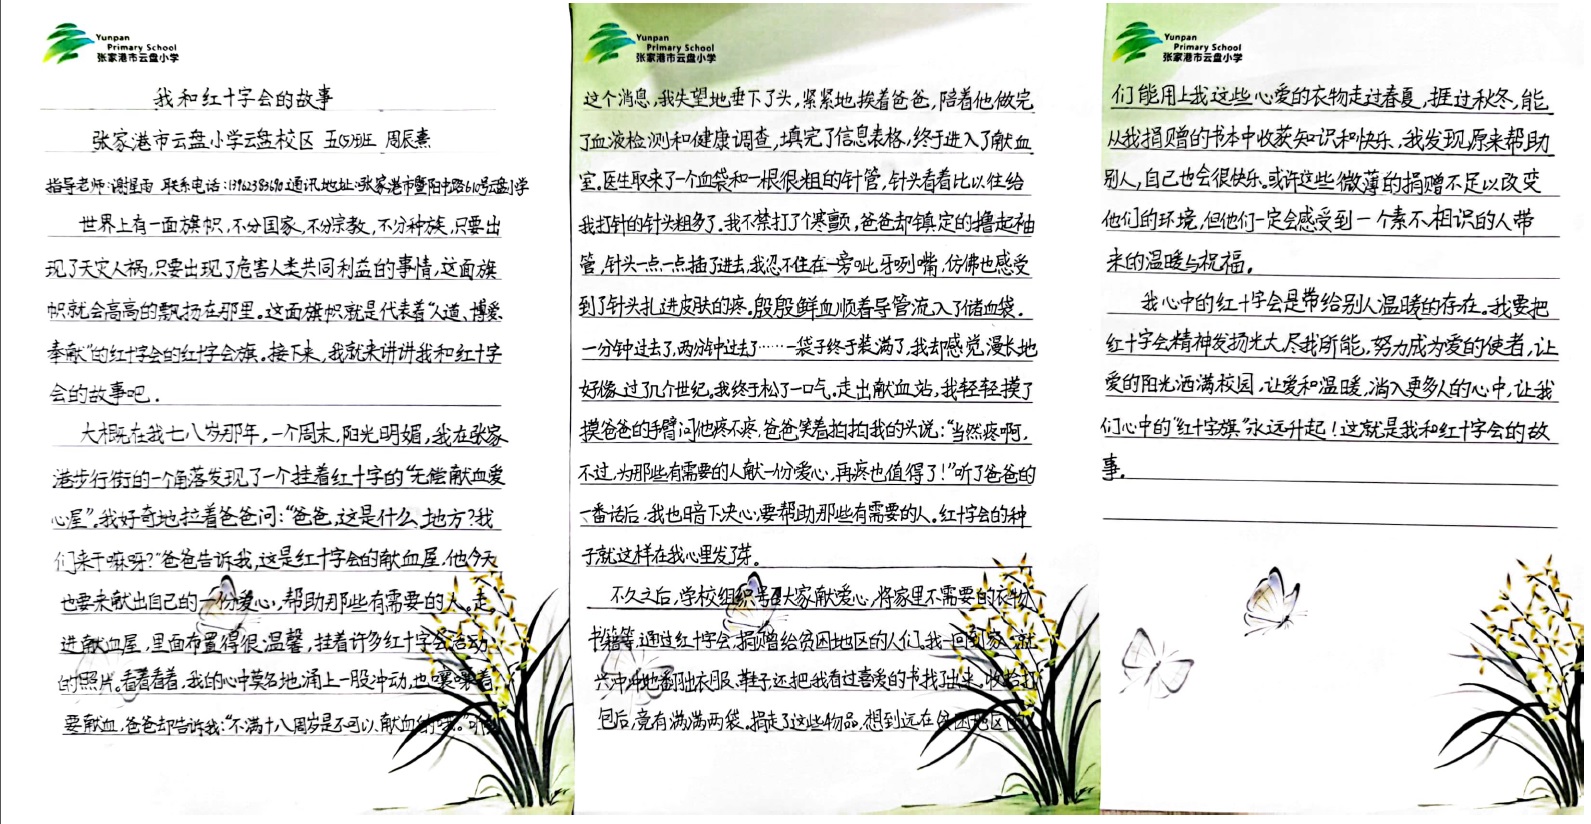 Yunpan
Primary School
张家港市云盘小学
我和红十字会的故事
张家港市云盘小学云盘校区 五(5)班 周辰熹
指导老师:谢星雨 联系电话:13962383690 通讯地址:张家港市暨阳中路610号云盘小学
世界上有一面旗帜,不分国家,不分宗教,不分种族,只要出
现了天灾人祸,只要出现了危害人类共同利益的事情,这面旗
帜就会高高的飘扬在那里。这面旗帜就是代表着“人道、博爱、
奉献”的红十字会的红十字会旗。接下来,我就来讲讲我和红十字
会的故事吧.
大概在我七八岁那年,一个周末,阳光明媚,我在张家
港步行街的一个角落发现了一个挂着红十字的“无偿献血爱
心屋”。我好奇地拉着爸爸问:“爸爸,这是什么地方?我
们来干嘛呀?”爸爸告诉我,这是红十字会的献血屋,他今天
也要来献出自己的一份爱心,帮助那些有需要的人。走
进献血屋,里面布置得很温馨,挂着许多红十字会活动
的照片。看着看着,我的心中莫名地涌上一股冲动,也嚷嚷着
要献血,爸爸却告诉我:“不满十八周岁是不可以献血的哦。”听到
Yunpan
Primary School
张家港市云盘小学
这个消息,我失望地垂下了头,紧紧地挨着爸爸,陪着他做完
了血液检测和健康调查,填完了信息表格,终于进入了献血
室。医生取来了一个血袋和一根很粗的针管,针头看着比以往给
我打针的针头粗多了。我不禁打了个寒颤,爸爸却镇定的撸起袖
管,针头一点一点插了进去,我忍不住在一旁呲牙咧嘴,仿佛也感受
到了针头扎进皮肤的疼。殷殷鲜血顺着导管流入了储血袋.
一分钟过去了,两分钟过去了……一袋子终于装满了,我却感觉漫长地
好像过了几个世纪。我终于松了一口气。走出献血站,我轻轻摸了
摸爸爸的手臂问他疼不疼,爸爸笑着拍拍我的头说:“当然疼啊,
不过,为那些有需要的人献一份爱心,再疼也值得了!”听了爸爸的
一番话后,我也暗下决心:要帮助那些有需要的人。红十字会的种
子就这样在我心里发了芽。
不久之后,学校组织号召大家献爱心,将家里不需要的衣物、
书籍等,通过红十字会,捐赠给贫困地区的人们。我一回到家,就
兴冲冲地翻出衣服、鞋子,还把我看过喜爱的书找了出来。收拾打
包后,竟有满满两袋。捐走了这些物品,想到远在贫困地区的人
Yunpan
Primary School
张家港市云盘小学
们能用上我这些心爱的衣物走过春夏,捱过秋冬,能
从我捐赠的书本中收获知识和快乐,我发现,原来帮助
别人,自己也会很快乐。或许这些微薄的捐赠不足以改变
他们的环境,但他们一定会感受到一个素不相识的人带
来的温暖与祝福。
我心中的红十字会是带给别人温暖的存在。我要把
红十字会精神发扬光大,尽我所能,努力成为爱的使者,让
爱的阳光洒满校园,让爱和温暖,淌入更多人的心中,让我
们心中的“红十字旗”永远升起!这就是我和红十字会的故
事。